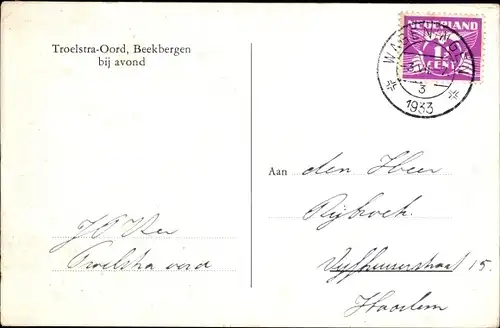 Troelstra-Oord, Beekbergen
bij avond
NEDERLAND
1
CENT
WAGENINGEN
3
1933
Aan den Heer
Rijbroek.
Vijfhuizerstraat 15.
Haarlem
Troelstra oord